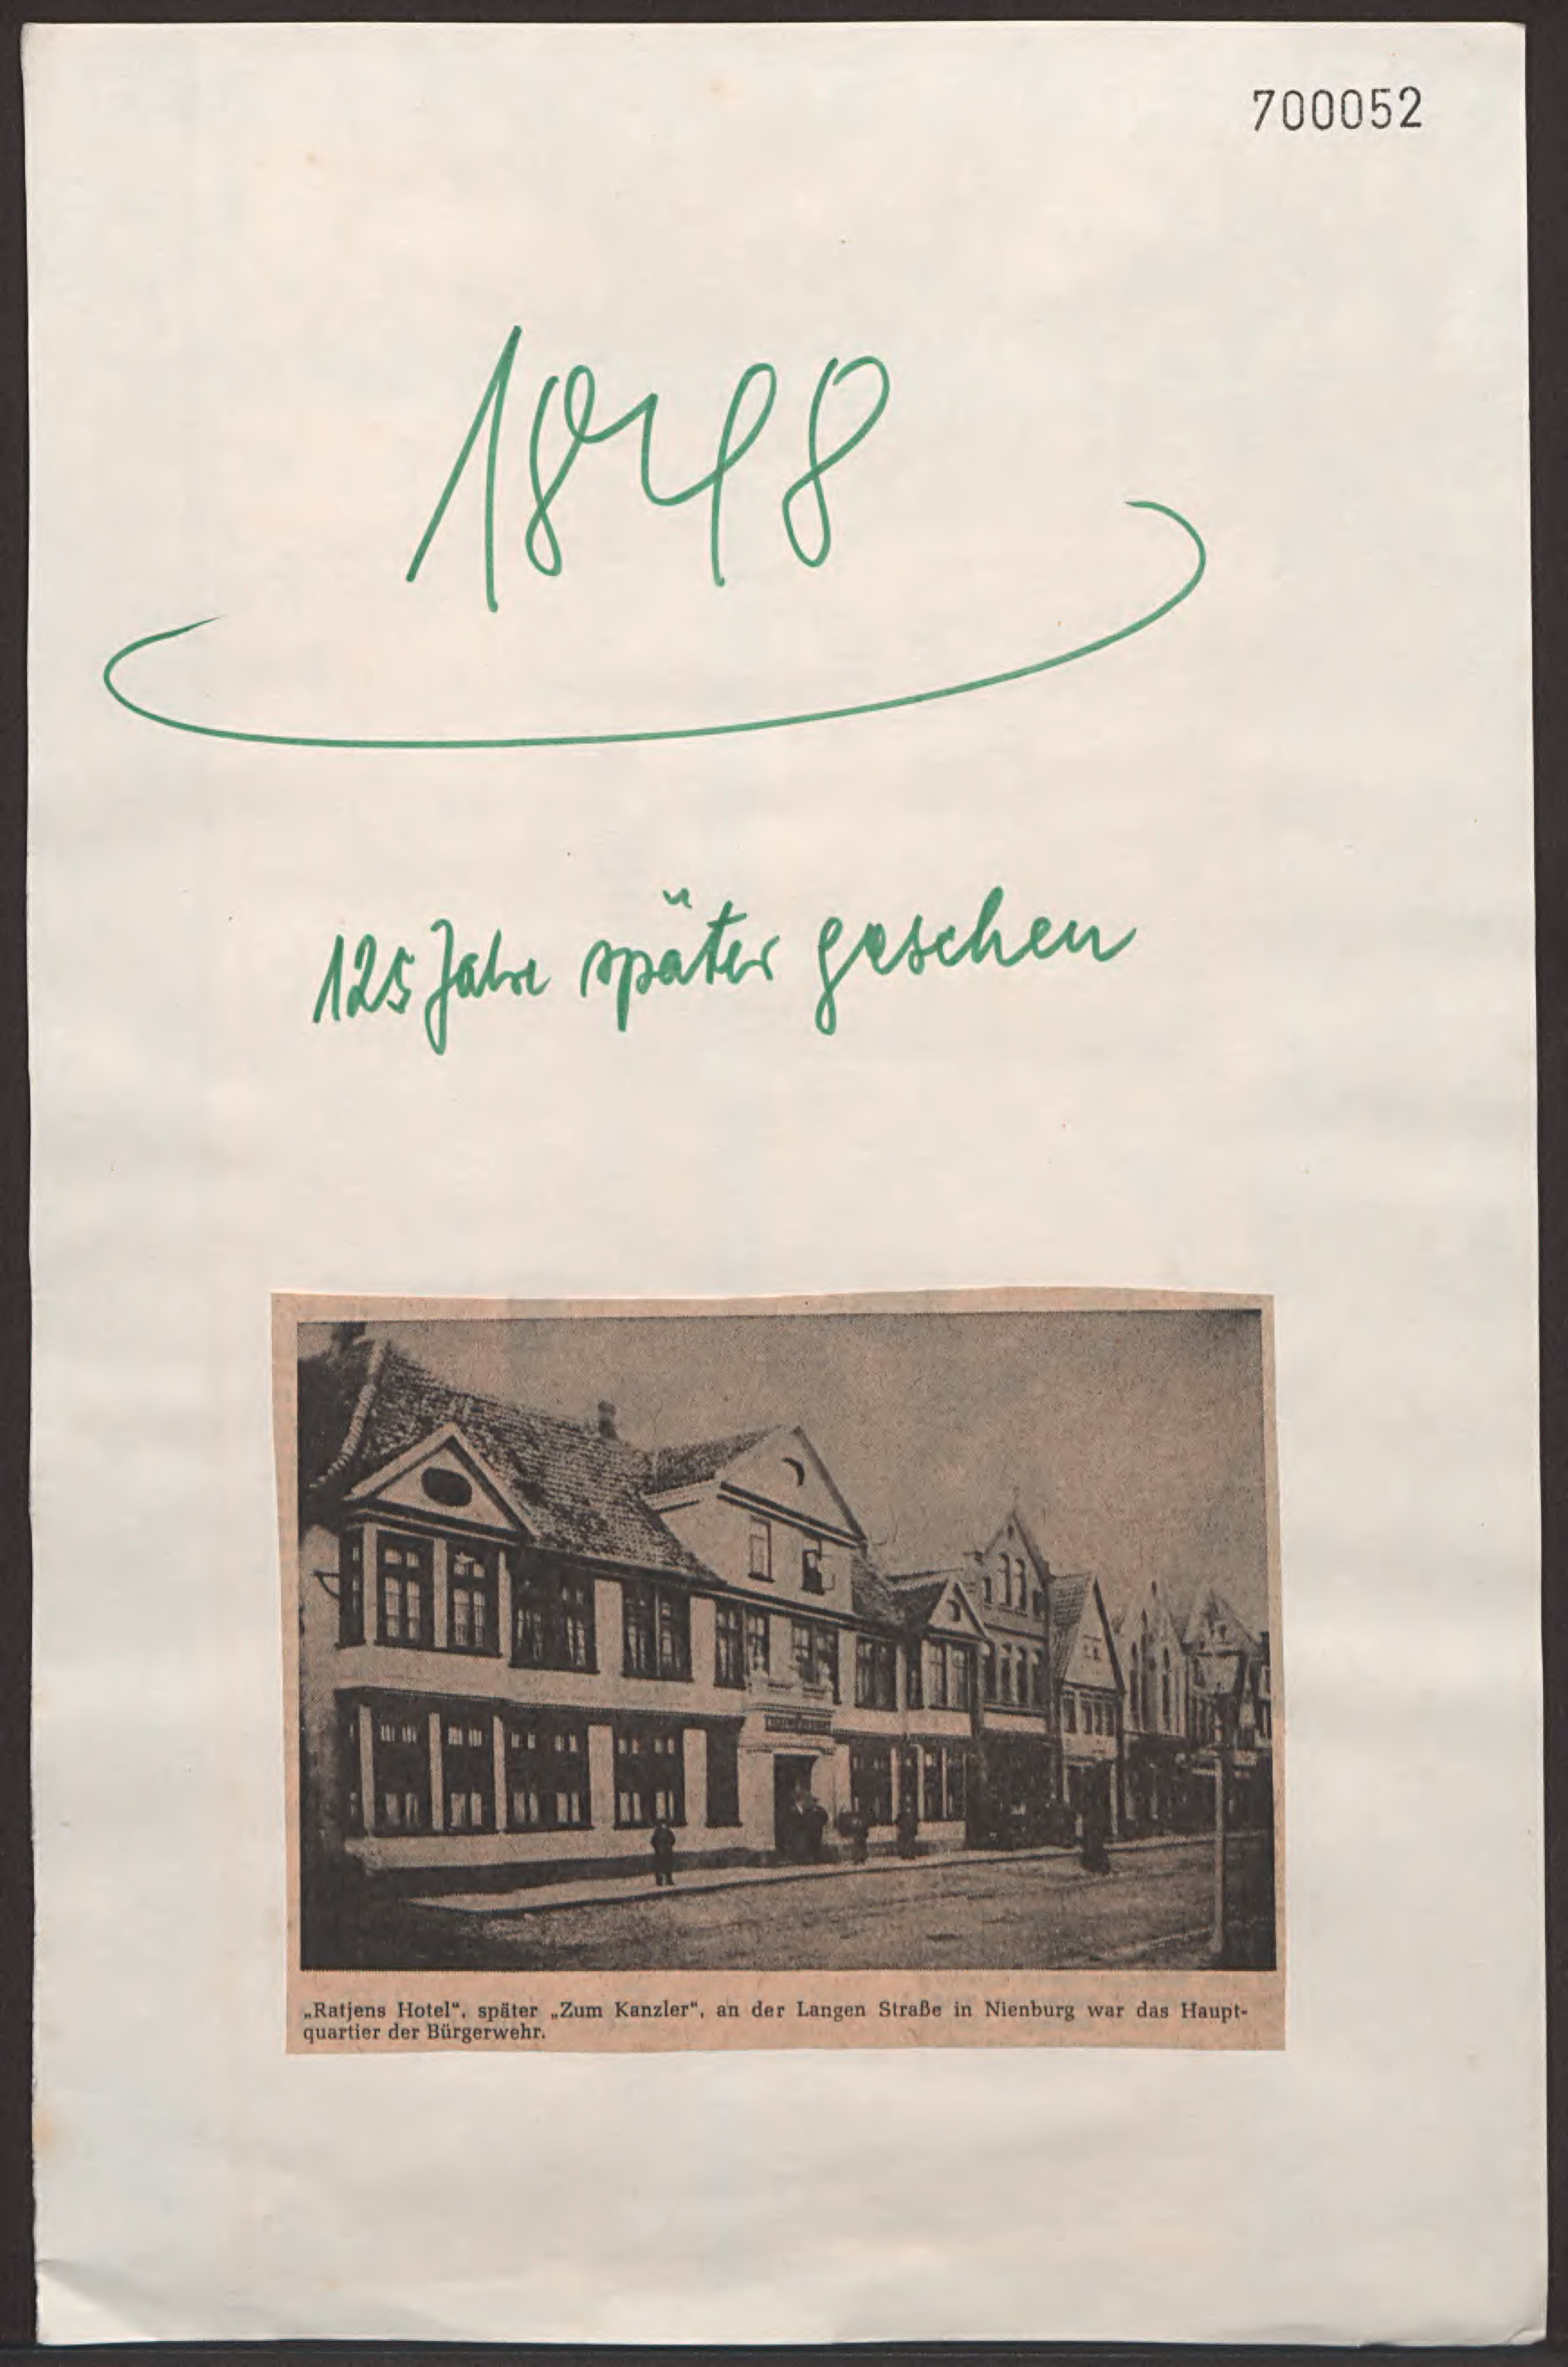 700052
1848
125 Jahre später gesehen
„Ratjens Hotel“, später „Zum Kanzler“, an der Langen Straße in Nienburg war das Haupt-
quartier der Bürgerwehr.